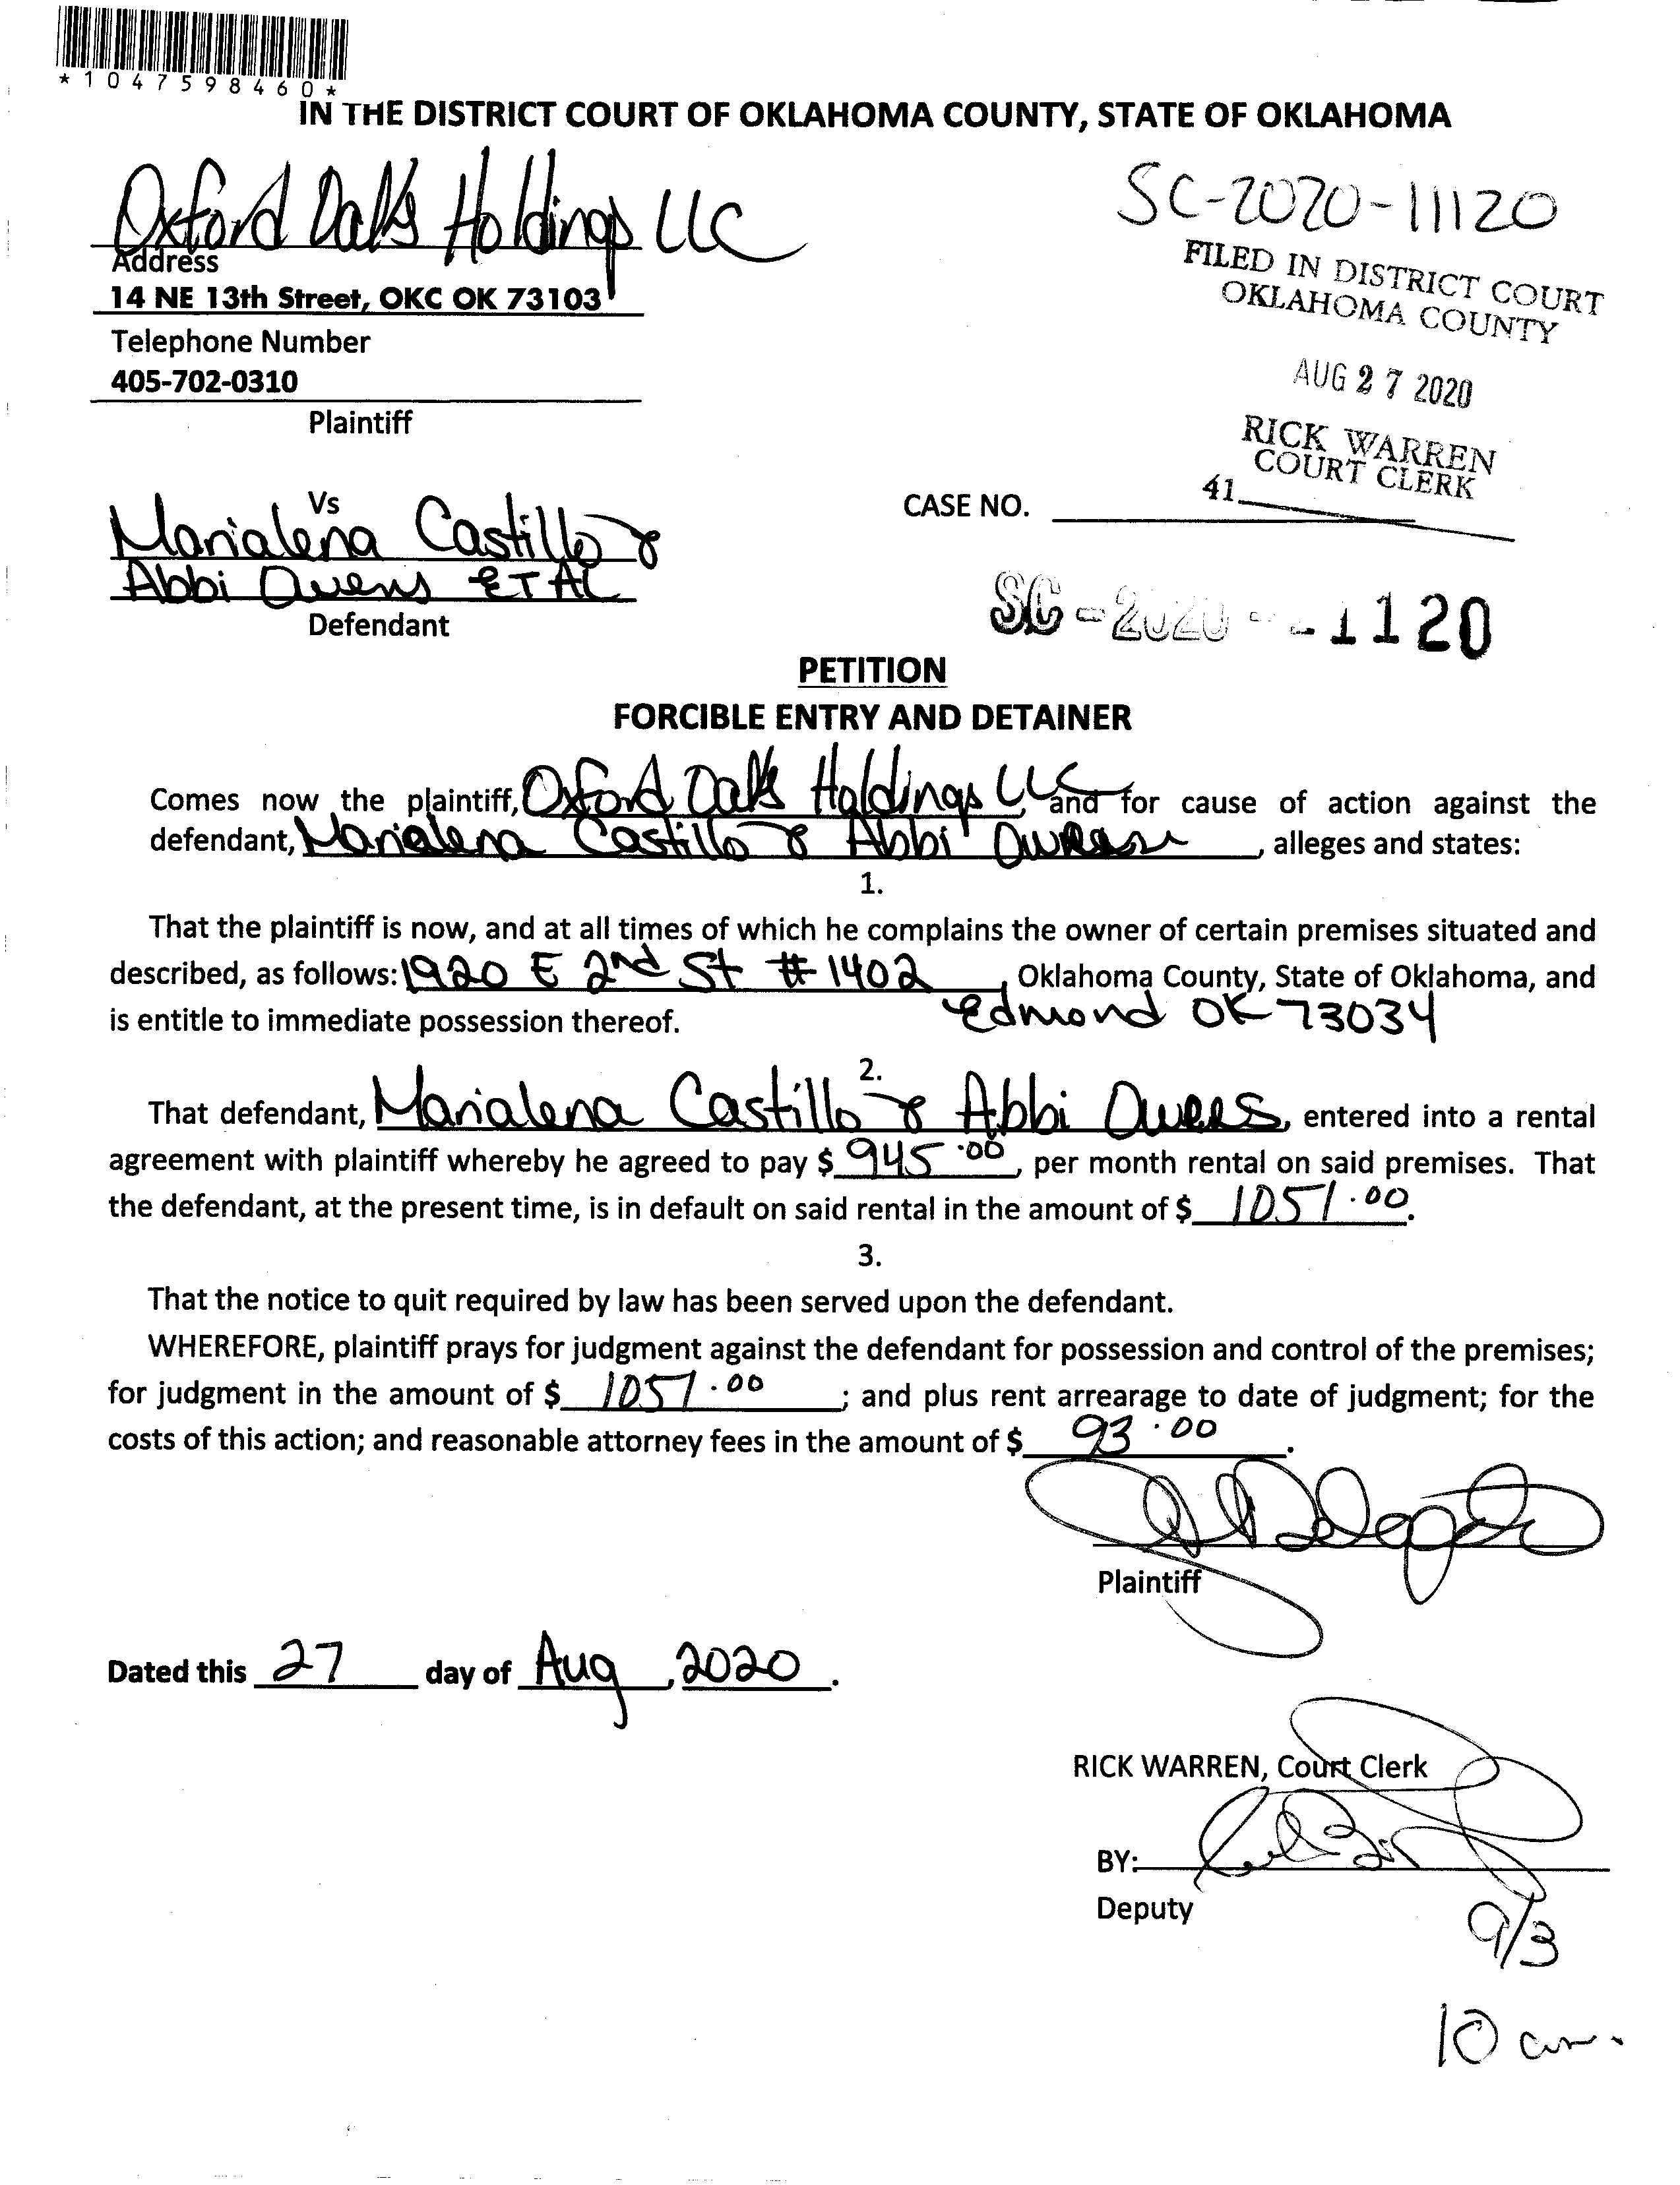 *1047598460*
IN THE DISTRICT COURT OF OKLAHOMA COUNTY, STATE OF OKLAHOMA
Oxford Oaks Holdings LLC
SC-2020-11120
Address
14 NE 13th Street, OKC OK 73103
FILED IN DISTRICT COURT
OKLAHOMA COUNTY
Telephone Number
405-702-0310
AUG 27 2020
Plaintiff
RICK WARREN
COURT CLERK
41
Vs
CASE NO.
Marialena Castillo &
Abbi Owens ET AL
Defendant
SC-2020--1120
PETITION
FORCIBLE ENTRY AND DETAINER
Comes now the plaintiff, Oxford Oaks Holdings LLC, and for cause of action against the
defendant, Marialena Castillo & Abbi Owens, alleges and states:
1.
That the plaintiff is now, and at all times of which he complains the owner of certain premises situated and
described, as follows: 1920 E 2nd St #1402, Oklahoma County, State of Oklahoma, and
is entitle to immediate possession thereof. Edmond OK 73034
2.
That defendant, Marialena Castillo & Abbi Owens, entered into a rental
agreement with plaintiff whereby he agreed to pay $ 945.00, per month rental on said premises. That
the defendant, at the present time, is in default on said rental in the amount of $ 1051.00.
3.
That the notice to quit required by law has been served upon the defendant.
WHEREFORE, plaintiff prays for judgment against the defendant for possession and control of the premises;
for judgment in the amount of $ 1051.00; and plus rent arrearage to date of judgment; for the
costs of this action; and reasonable attorney fees in the amount of $ 93.00.
Plaintiff
Dated this 27 day of Aug, 2020.
RICK WARREN, Court Clerk
BY:
Deputy
9/3
10 am.